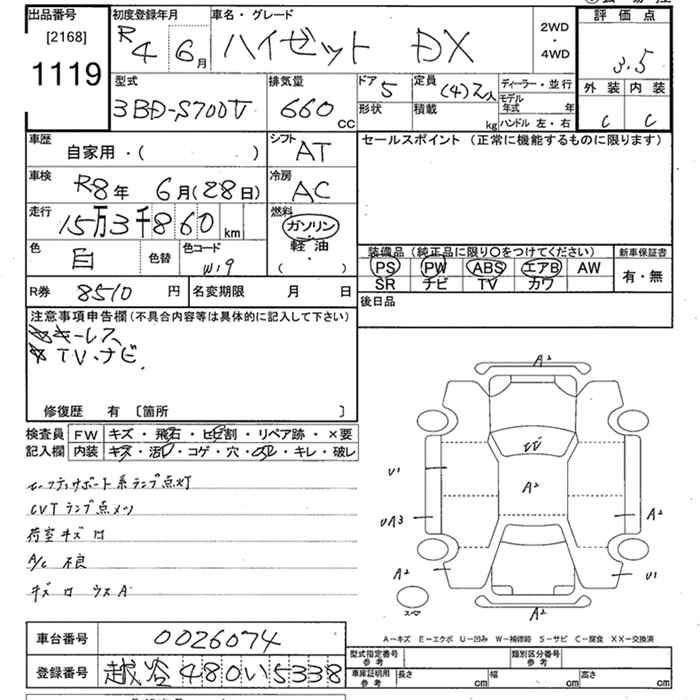 出品番号
[2168]
1119
初度登録年月
R4 6月
車名・グレード
ハイゼット DX
2WD
・
4WD
評価点
3.5
外装 内装
C C
型式
3BD-S700V
排気量
660 CC
ドア 5
定員 (4)2人
形状
積載 kg
ディーラー・並行
モデル年式 年
ハンドル 左・右
車歴
自家用・( )
シフト
AT
セールスポイント (正常に機能するものに限ります)
車検
R8年 6月(28日)
冷房
AC
走行
15万3千860 km
燃料
ガソリン
・
軽油
・
( )
色
白
色替
色コード
W19
装備品 (純正品に限り〇をつけてください)
PS PW ABS エアB AW
SR ナビ TV カワ
新車保証書
有・無
R券 8510 円
名変期限 月 日
後日品
注意事項申告欄(不具合内容等は具体的に記入して下さい)
キーレス
TV、ナビ
修復歴 有 [箇所 ]
検査員
記入欄
FW キズ・飛石・ヒビ割・リペア跡・×要
内装 キズ・汚レ・コゲ・穴・凹・キレ・破レ
セーフティサポート系ランプ点灯
CVTランプ点メツ
荷室キズ凹
A/C 不良
キズ凹ウスA
A2
W
A2
U1
UA3
A2
A2
U1
スペア
A2
A-キズ E-エクボ U-凹み W-補修跡 S-サビ C-腐食 XX-交換済
車台番号
0026074
登録番号
越谷480い5338
型式指定番号
参考
類別区分番号
参考
車庫証明用
参考
長さ cm
幅 cm
高さ cm